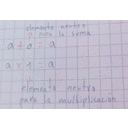 elemento neutro
para la suma
a + 0 = a
a × 1 = a
elemento neutro
para la multiplicación